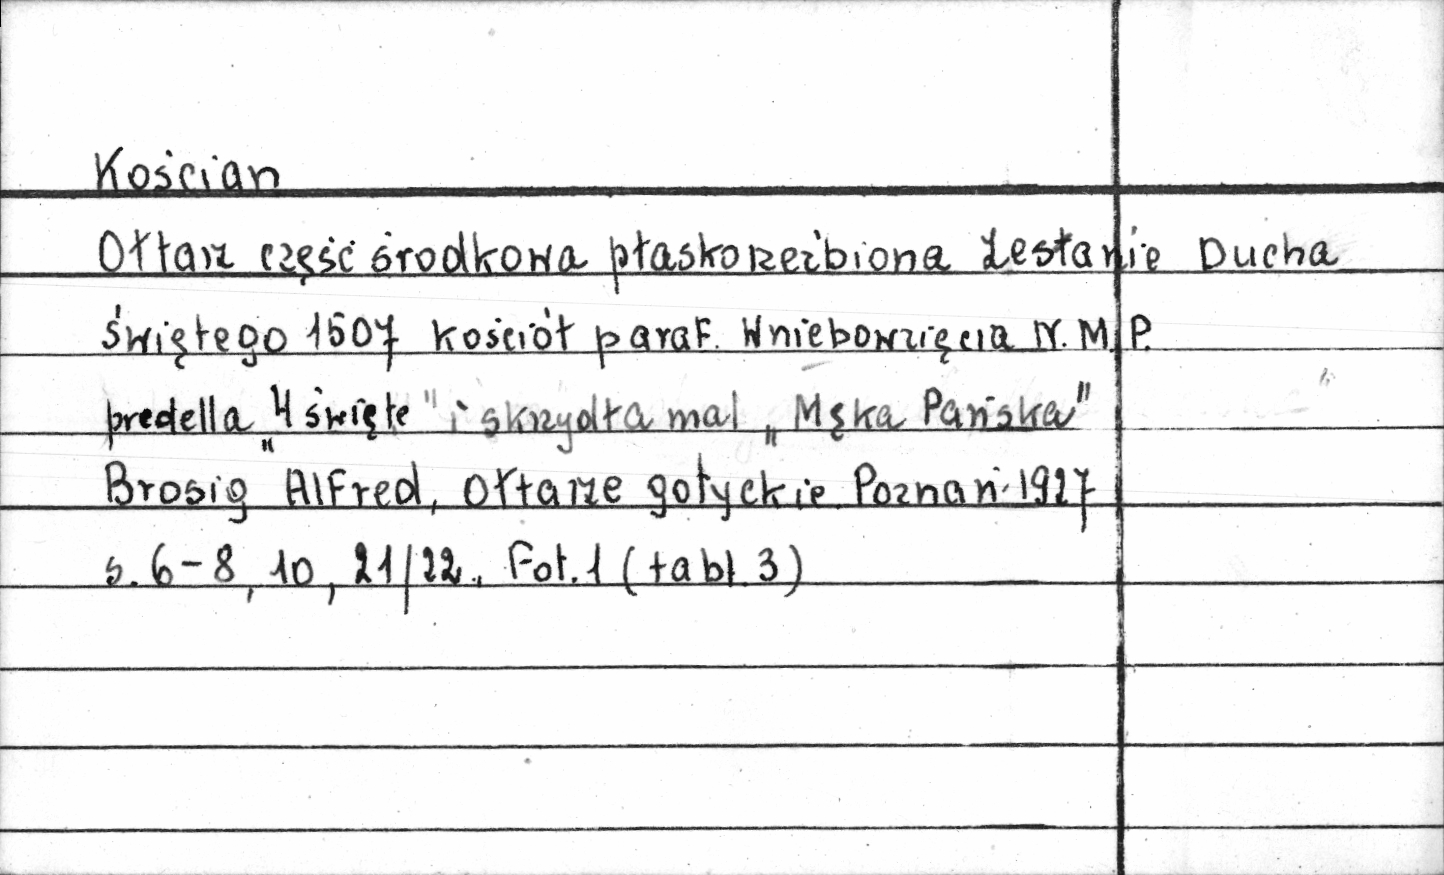 Kościan
Ołtarz część środkowa płaskorzeźbiona Zesłanie Ducha
Świętego 1507 kościół paraf. Wniebowzięcia N.M.P.
predella „4 święte" i skrzydła mal „Męka Pańska"
Brosig Alfred, Ołtarze gotyckie. Poznań 1927
s. 6-8, 10, 21/22., Fot. 1 (tabl. 3)